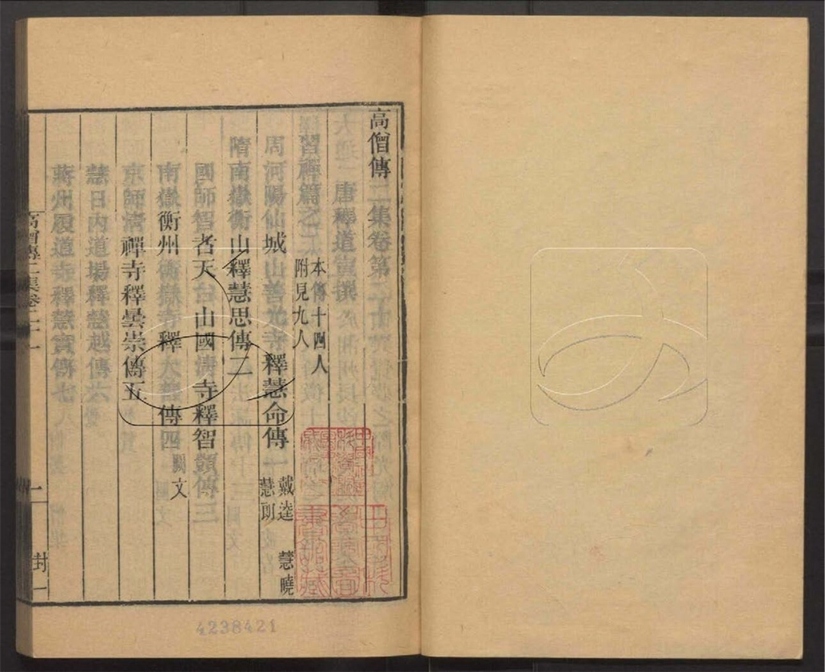 高僧傳二集卷第二十一
唐釋道宣撰
習禪篇之二
本傳十四人
附見九人
周河陽仙城山善光寺釋慧命傳一
戴逵 慧曉
慧朗
隋南嶽衡山釋慧思傳二
國師智者天台山國清寺釋智顗傳三
南嶽衡州衡嶽寺釋大善傳四 闕文
京師清禪寺釋曇崇傳五
慧日內道場釋慧越傳六
蔣州履道寺釋慧實傳七
高僧傳二集卷二十一
一
封一
4238421